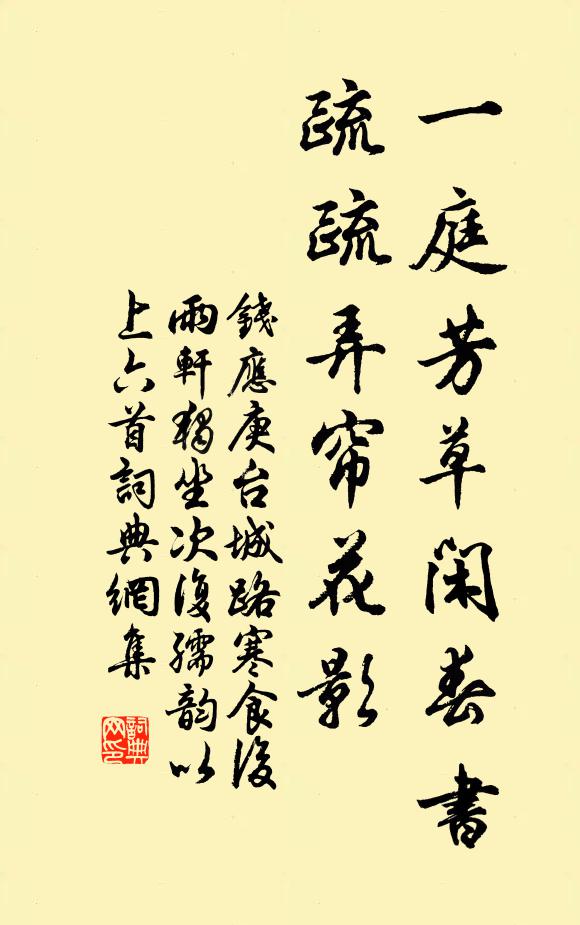 一庭芳草閑春書
疏疏弄帘花影
錢應庚台城路寒食後
雨軒獨坐次復孺韵以
上六首詞典網集
詞典網印